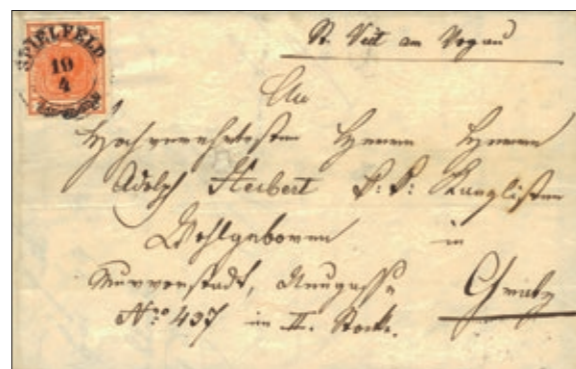 SPIELFELD
10
4
St. Veit am Vogau
An
Hochverehrtesten Herrn Herrn
Adolf Herbert k: k: Kanzlisten
Wohlgeboren in
Murvorstadt, Neugasse Gratz
Nro 437 im II. Stocke.